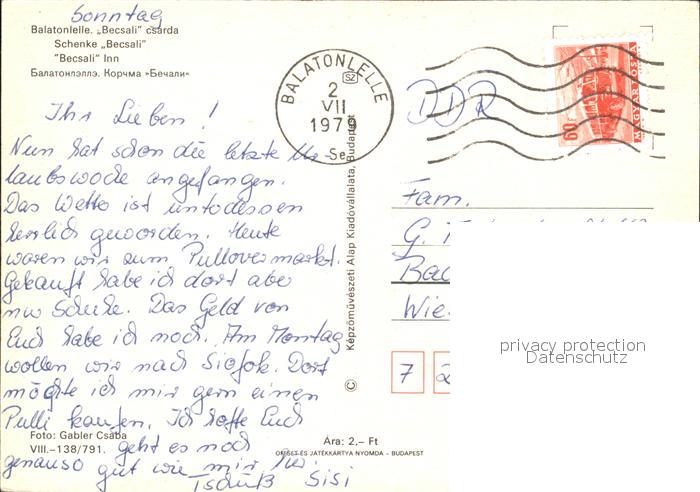 Sonntag
Balatonlelle. „Becsali" csárda
Schenke „Becsali"
"Becsali" Inn
Балатонлэллэ. Корчма «Бечали»
Ihr Lieben!
Nun hat schon die letzte Ur-
laubswoche angefangen.
Das Wetter ist untodessen
herrlich geworden. Heute
waren wir zum Pullovermarkt.
Gekauft habe ich dort aber
nur Schuhe. Das Geld von
Euch habe ich noch. Am Montag
wollen wir nach Siofok. Dort
möchte ich mir gern einen
Pulli kaufen. Ich hoffe Euch
geht es noch
genauso gut wie mir hier.
Tschüß Sisi
Foto: Gabler Csaba
VIII.–138/791.
Ára: 2,– Ft
OFFSET-ÉS JÁTÉKKÁRTYA NYOMDA - BUDAPEST
© Képzőművészeti Alap Kiadóvállalata, Budapest
BALATONLELLE
SZ
2
VII
197
-Se
DDR
60
MAGYAR POSTA
Fam.
G. T
Bac
Wie
7 2
privacy protection
Datenschutz